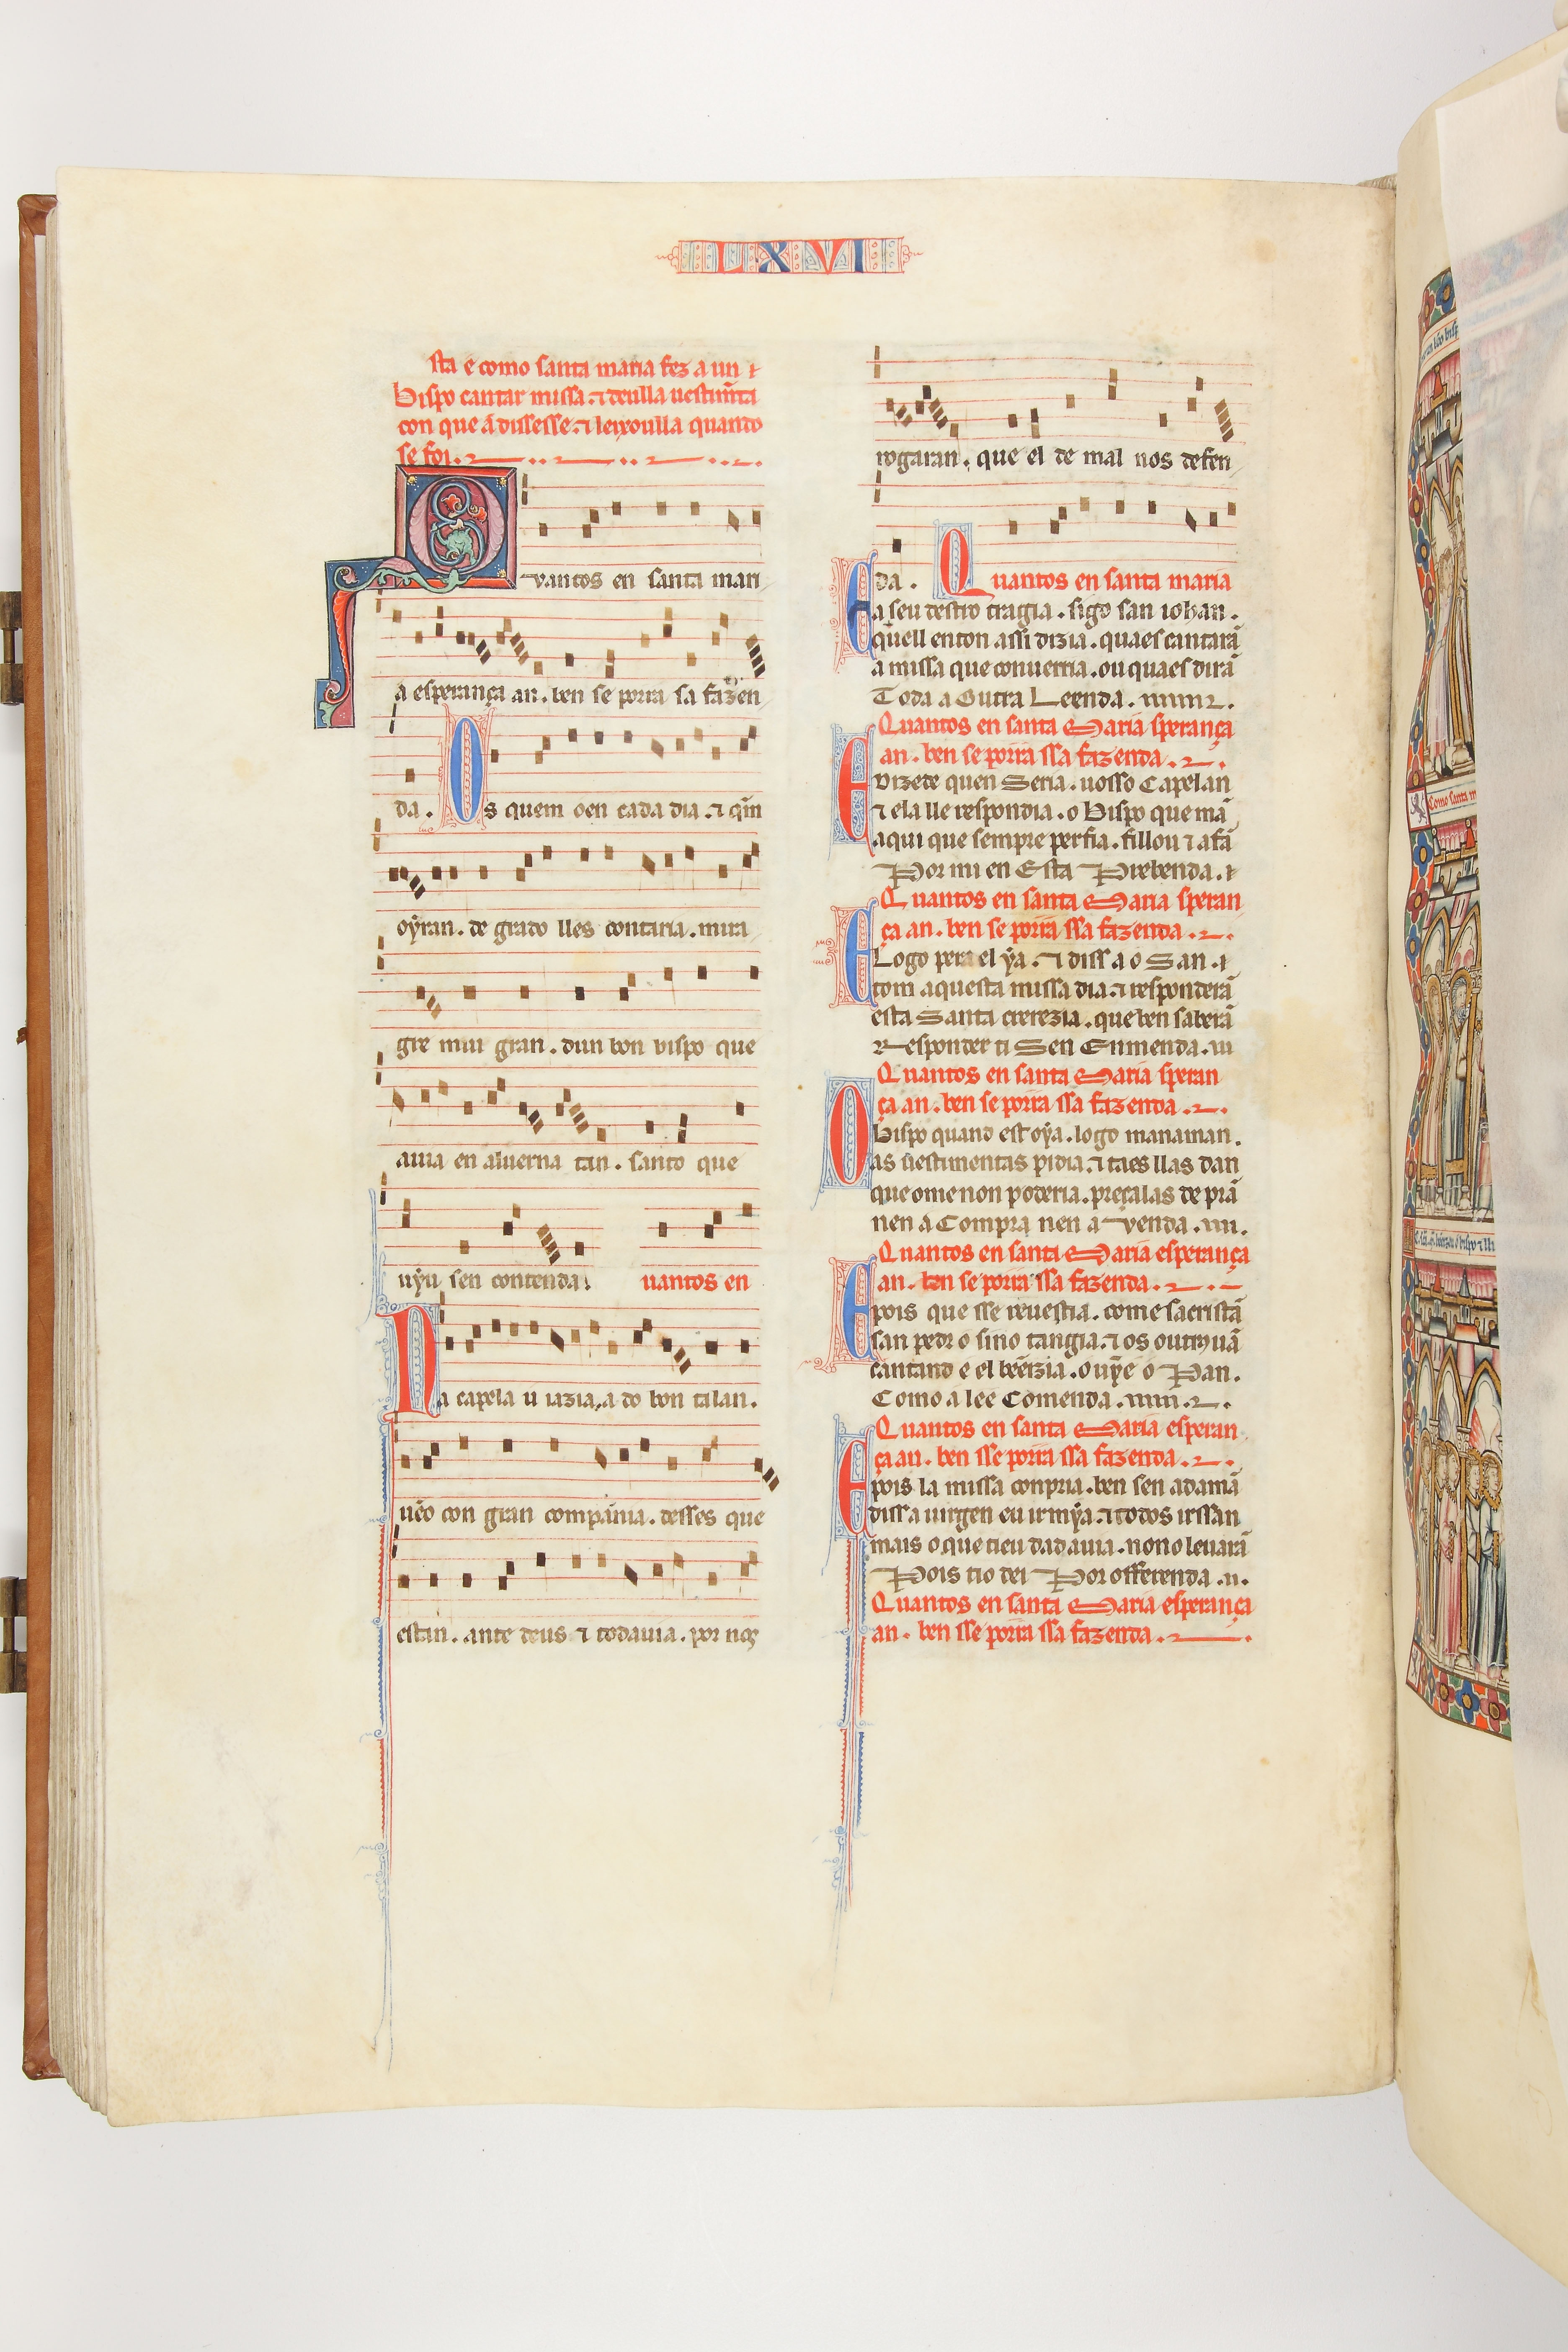 LXVI
sta e como santa maria fez a un
Bispo cantar missa. ⁊ deulla uestim̃ta
con que a dissesse. ⁊ leixoulla quando
se foi.
Quantos en santa mari
a esperança an. ben se porra sa fazen
da. Os quem oen cada dia. ⁊ q̃m
oyran. de grado lles contaria. mira
gre mui gran. dun bon bispo que
auia en aluerna tan. santo que
uyu sen contenda. uantos en
Na capela u iazia, a do bon talan.
uẽo con gran compania. desses que
estan. ante deus ⁊ todauia. por nos
rogaran. que el de mal nos defen
da. Quantos en santa maria
E a seu destro tragia. sigo san iohan.
quell enton assi dizia. quaes cantarã
a missa que conuerria. ou quaes dirã
Toda a Outra Leenda.
Quantos en santa Maria sperança
an. ben se porra ssa fazenda.
E dizede quen Seria. uosso Capelan
⁊ ela lle respondia. o Bispo que mã
aqui que sempre perfia. fillou ⁊ afã
Por mi en Esta Prebenda.
Quantos en santa Maria speran
ça an. ben se porra ssa fazenda.
E Logo pera el ya. ⁊ diss a o San
tom aquesta missa dia. ⁊ responderã
esta Santa crerezia. que ben saberã
Responder ti Sen Enmenda.
Quantos en santa Maria speran
ça an. ben se porra ssa fazenda.
O Bispo quand est oya. logo manaman.
as uestimentas pidia. ⁊ taes llas dan
que ome non poderia. preçalas de prã
nen a Compra nen a venda.
Quantos en santa Maria esperança
an. ben se porra ssa fazenda.
E pois que sse reuestia. come sacristã
san pedr o sino tangia. ⁊ os outros uã
cantand e el bẽeizia. o uỹe o Pan.
Como a lee Comenda.
Quantos en santa Maria esperan
ça an. ben sse porra ssa fazenda.
E pois la missa conpria. ben sen adamã
diss a uirgen eu ir mya. ⁊ todos irssan
mais o que ti eu dad auia. nono leuarã
Pois tio dei Por offerenda.
Quantos en santa Maria esperança
an. ben sse porra ssa fazenda.
Como santa m